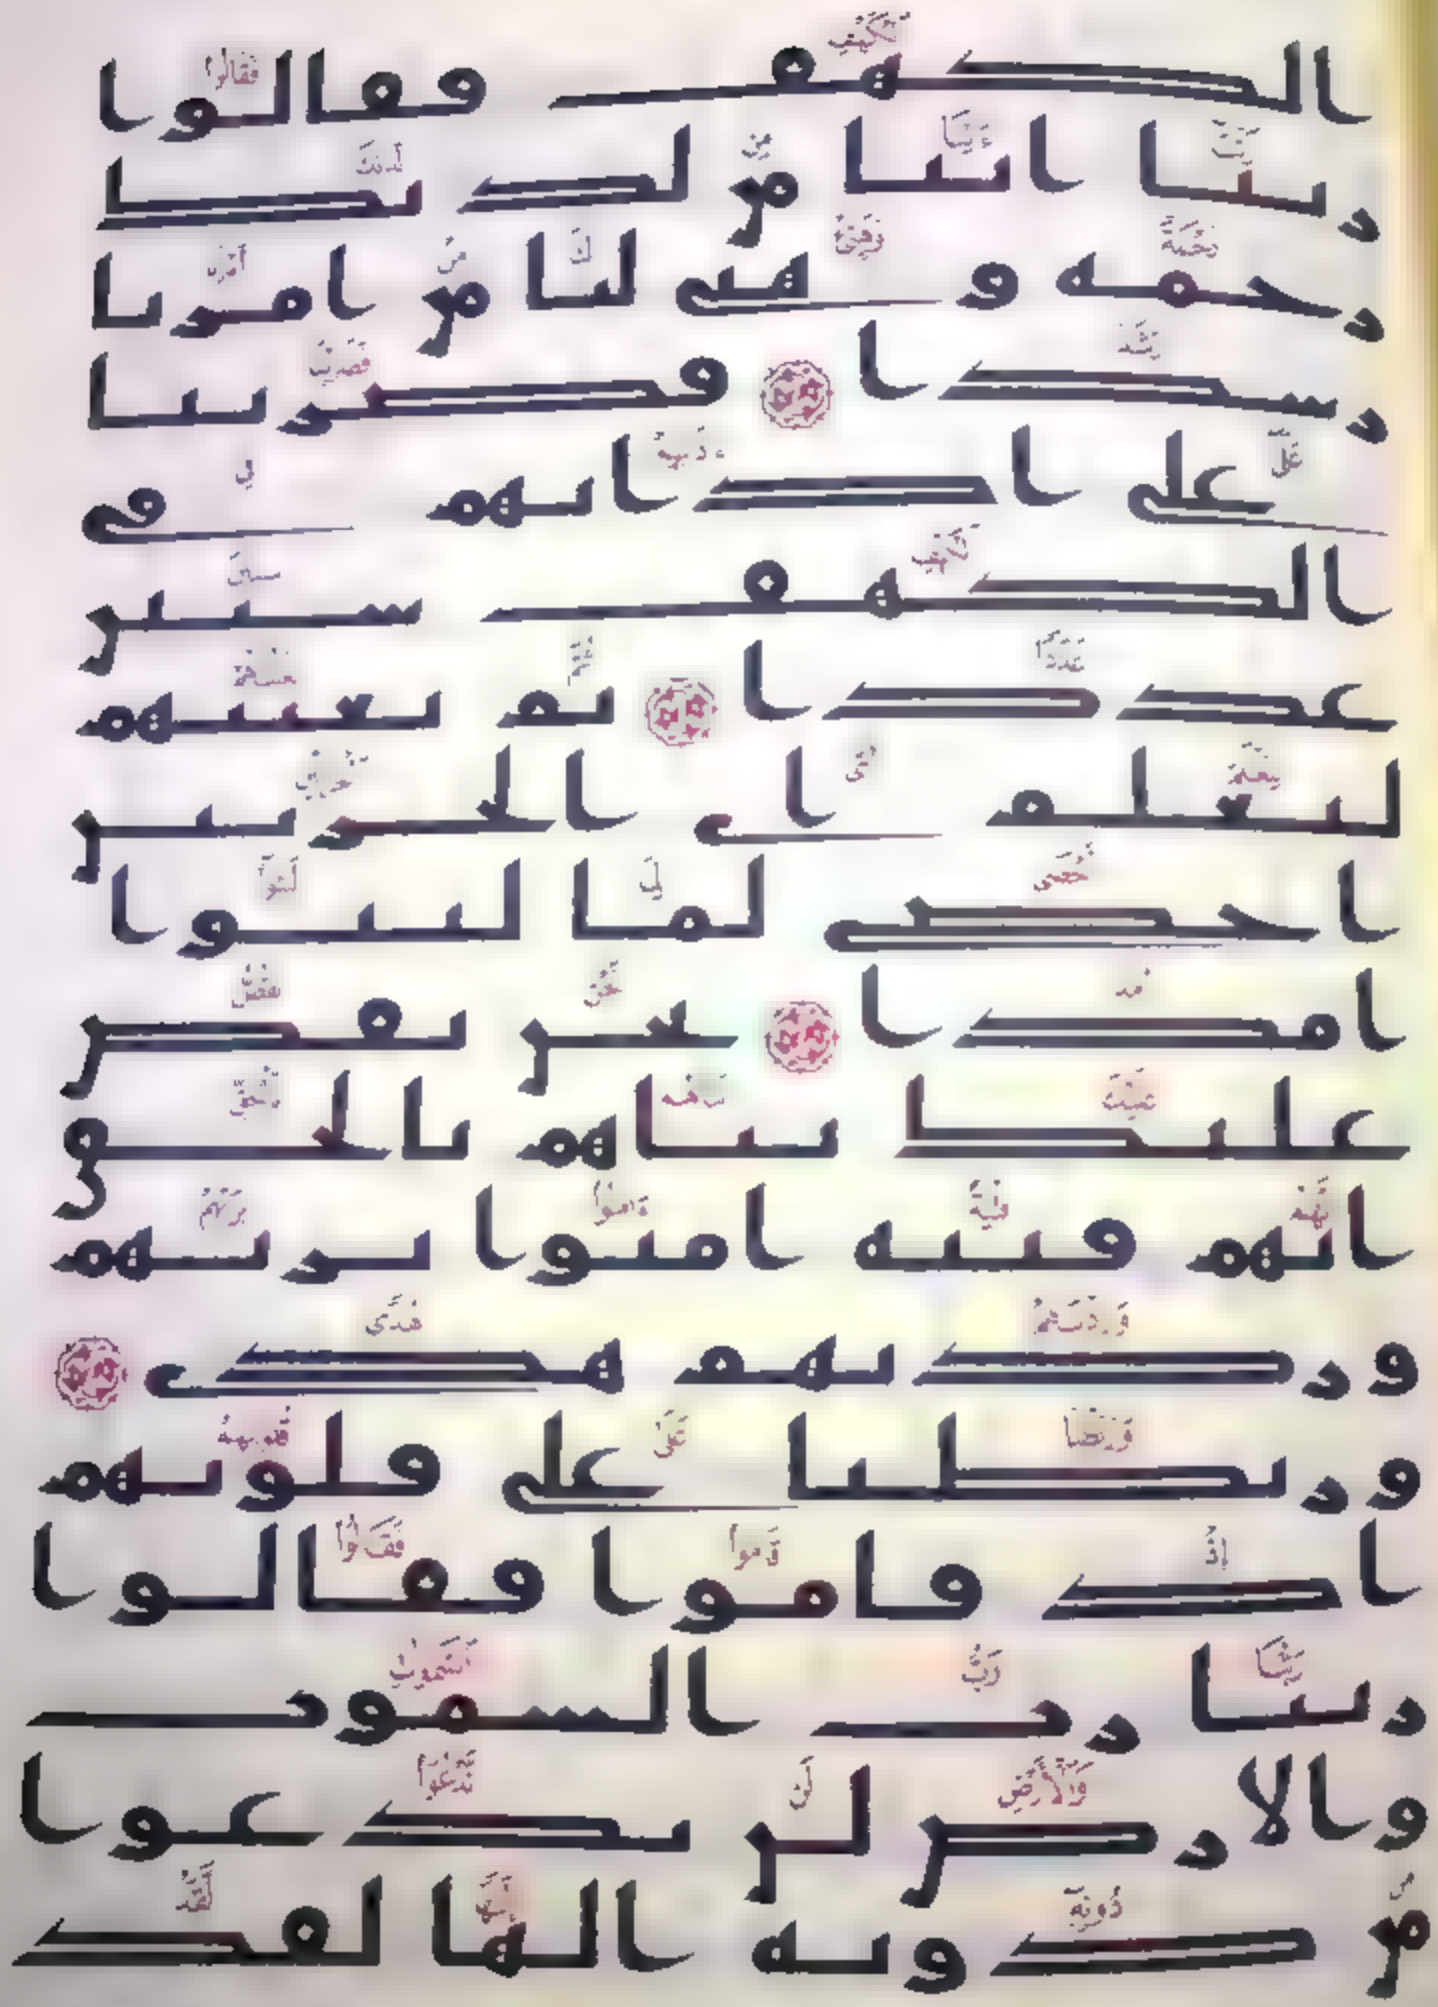 الكهف فقالوا
ربنا اتنا من لدنك
رحمه وهيى لنا من امرنا
رشدا فضربنا
على اذانهم فى
الكهف سنين
عددا ثم بعثنهم
لنعلم اى الحزبين
احصى لما لبثوا
امدا نحن نقص
عليك نباهم بالحق
انهم فتيه امنوا بربهم
وزدنهم هدى
وربطنا على قلوبهم
اذ قاموا فقالوا
ربنا رب السموت
والارض لن ندعوا
من دونه الها لقد